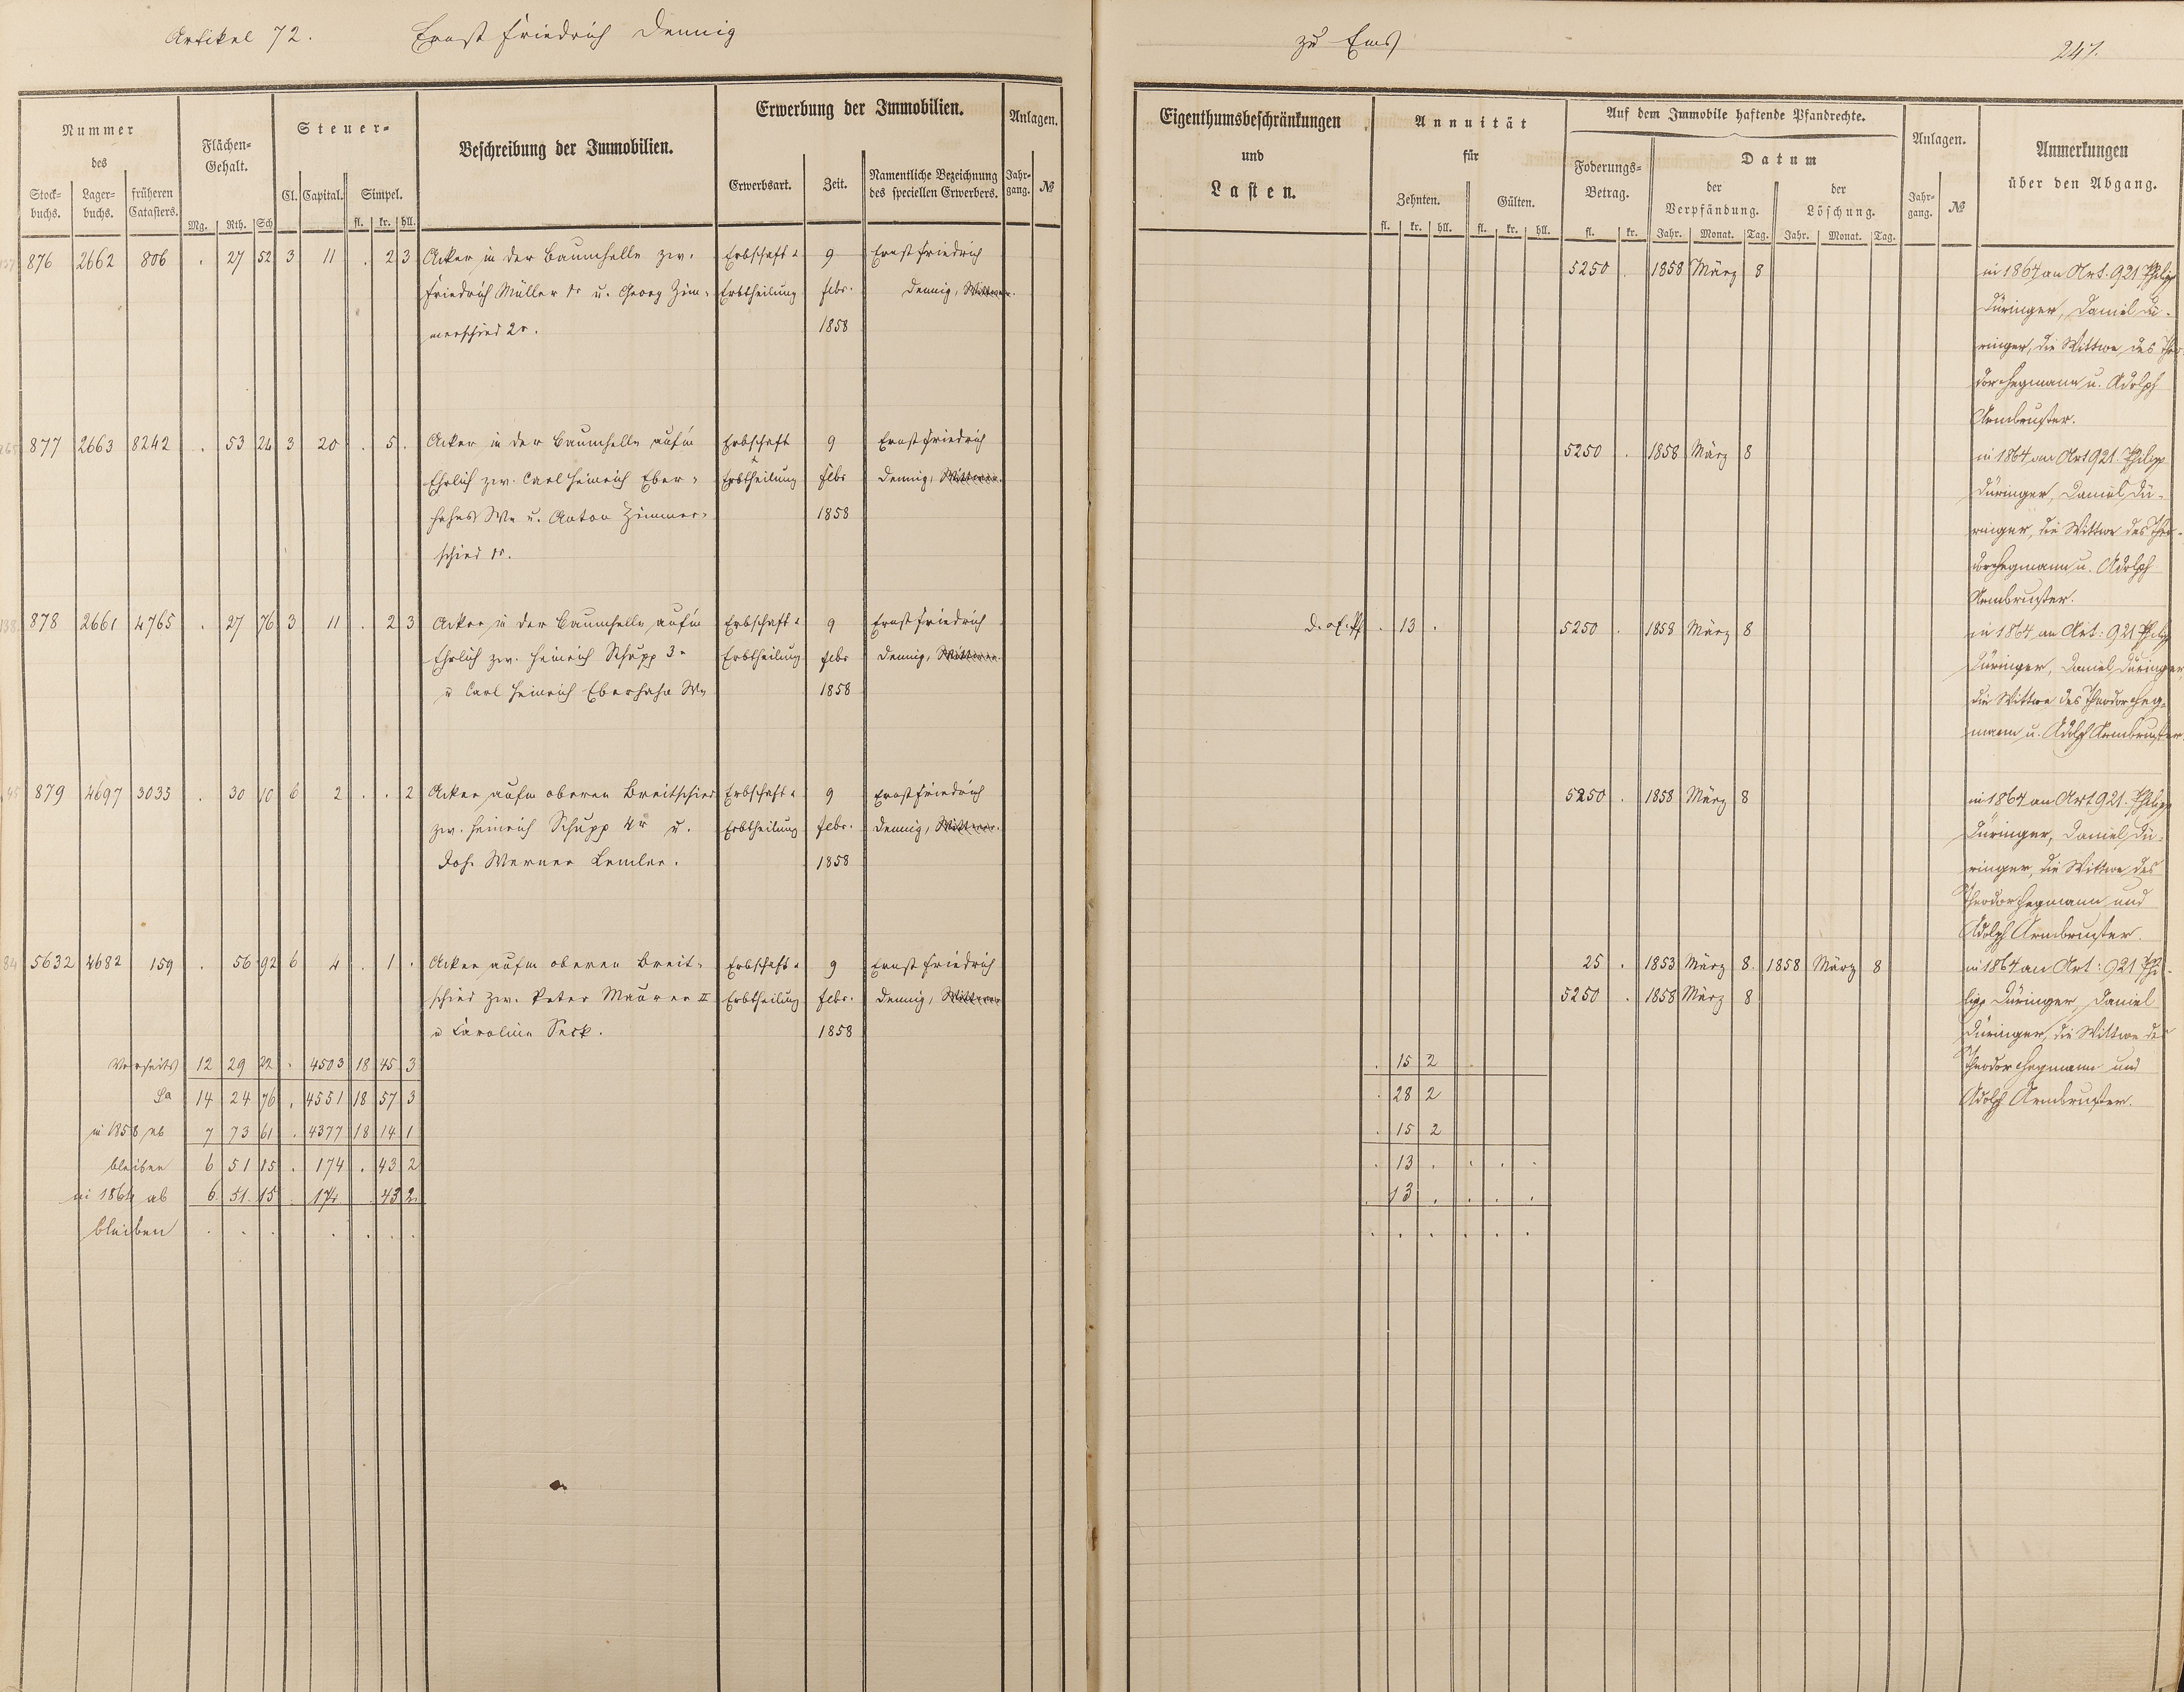 Artikel 72. Ernst Friedrich Dennig
zu Ems
247.
Nummer
des
Stock-
buchs.
Lager-
buchs.
früheren
Catasters.
Flächen-
Gehalt.
Mg. Rth. Sch
Steuer-
Cl. Capital. Simpel.
fl. kr. hll.
Beschreibung der Immobilien.
Erwerbung der Immobilien.
Erwerbsart. Zeit.
Namentliche Bezeichnung
des speciellen Erwerbers.
Anlagen.
Jahr-
gang. №
Eigenthumsbeschränkungen
und
Lasten.
Annuität
für
Zehnten. Gülten.
fl. kr. hll. fl. kr. hll.
Auf dem Immobile haftende Pfandrechte.
Foderungs-
Betrag.
fl. kr.
Datum
der
Verpfändung.
der
Löschung.
Jahr. Monat. Tag. Jahr. Monat. Tag.
Anlagen.
Jahr-
gang. №
Anmerkungen
über den Abgang.
876 2662 806 . 27 52 3 11 . 2 3 Acker in der Baumhelle zw. Erbschaft & 9 Ernst Friedrich
Friedrich Müller 1r u. Georg Zim- Erbtheilung febr. Dennig, Wittwer.
merschied 2r. 1858
5250 . 1858 März 8
in 1864 an Art. 921 Philipp
Düringer, Daniel Dü-
ringer, die Wittwe des Theo-
dor Hegmann u. Adolph
Armbruster.
877 2663 8242 . 53 24 3 20 . 5 . Acker in der Baumhelle auf'm Erbschaft 9 Ernst Friedrich
Ehrlich zw. Carl Heinrich Eber- Erbtheilung febr Dennig, Wittwer.
hahns We u. Anton Zimmer- 1858
schied 1r.
5250 . 1858 März 8
in 1864 an Art 921. Philipp
Düringer, Daniel Dü-
ringer, die Wittwe des Theo-
dor Hegmann u. Adolph
Armbruster.
878 2661 4765 . 27 76 3 11 . 2 3 Acker in der Baumhelle auf'm Erbschaft & 9 Ernst Friedrich
Ehrlich zw. Heinrich Schupp 3r Erbtheilung febr Dennig, Wittwer.
u Carl Heinrich Eberhahn We 1858
. 13 . 5250 . 1858 März 8
in 1864 an Art: 921 Philipp
Düringer, Daniel Düringer,
die Wittwe des Theodor Heg-
mann u. Adolph Armbruster
879 4697 3035 . 30 10 6 2 . . 2 Acker aufm oberen Breitschied Erbschaft & 9 Ernst Friedrich
zw. Heinrich Schupp 4r u. Erbtheilung febr. Dennig, Wittwer.
Joh. Werner Lemler. 1858
5250 . 1858 März 8
in 1864 an Art 921. Philipp
Düringer, Daniel Dü-
ringer, die Wittwe des
Theodor Hegmann und
Adolph Armbruster.
5632 4682 159 . 56 92 6 4 . 1 . Acker aufm oberen Breit- Erbschaft & 9 Ernst Friedrich
schied zw. Peter Maurer II Erbtheilung febr. Dennig, Wittwer
u Caroline Seck. 1858
25 . 1853 März 8. 1858 März 8
5250 . 1858 März 8
in 1864 an Art: 921 Phi-
lipp Düringer, Daniel
Düringer, die Wittwe des
Theodor Hegmann und
Adolph Armbruster.
Vorseits 12 29 22 . 4503 18 45 3 . 15 2
Sa 14 24 76 . 4551 18 57 3 . 28 2
in 1858 ab 7 73 61 . 4377 18 14 1 . 15 2
bleiben 6 51 15 . 174 . 43 2 . 13 . . . .
in 1864 ab 6. 51. 15 . 174 . 43 2. . 13 . . . .
bleiben . . . . . . . . . . . . .